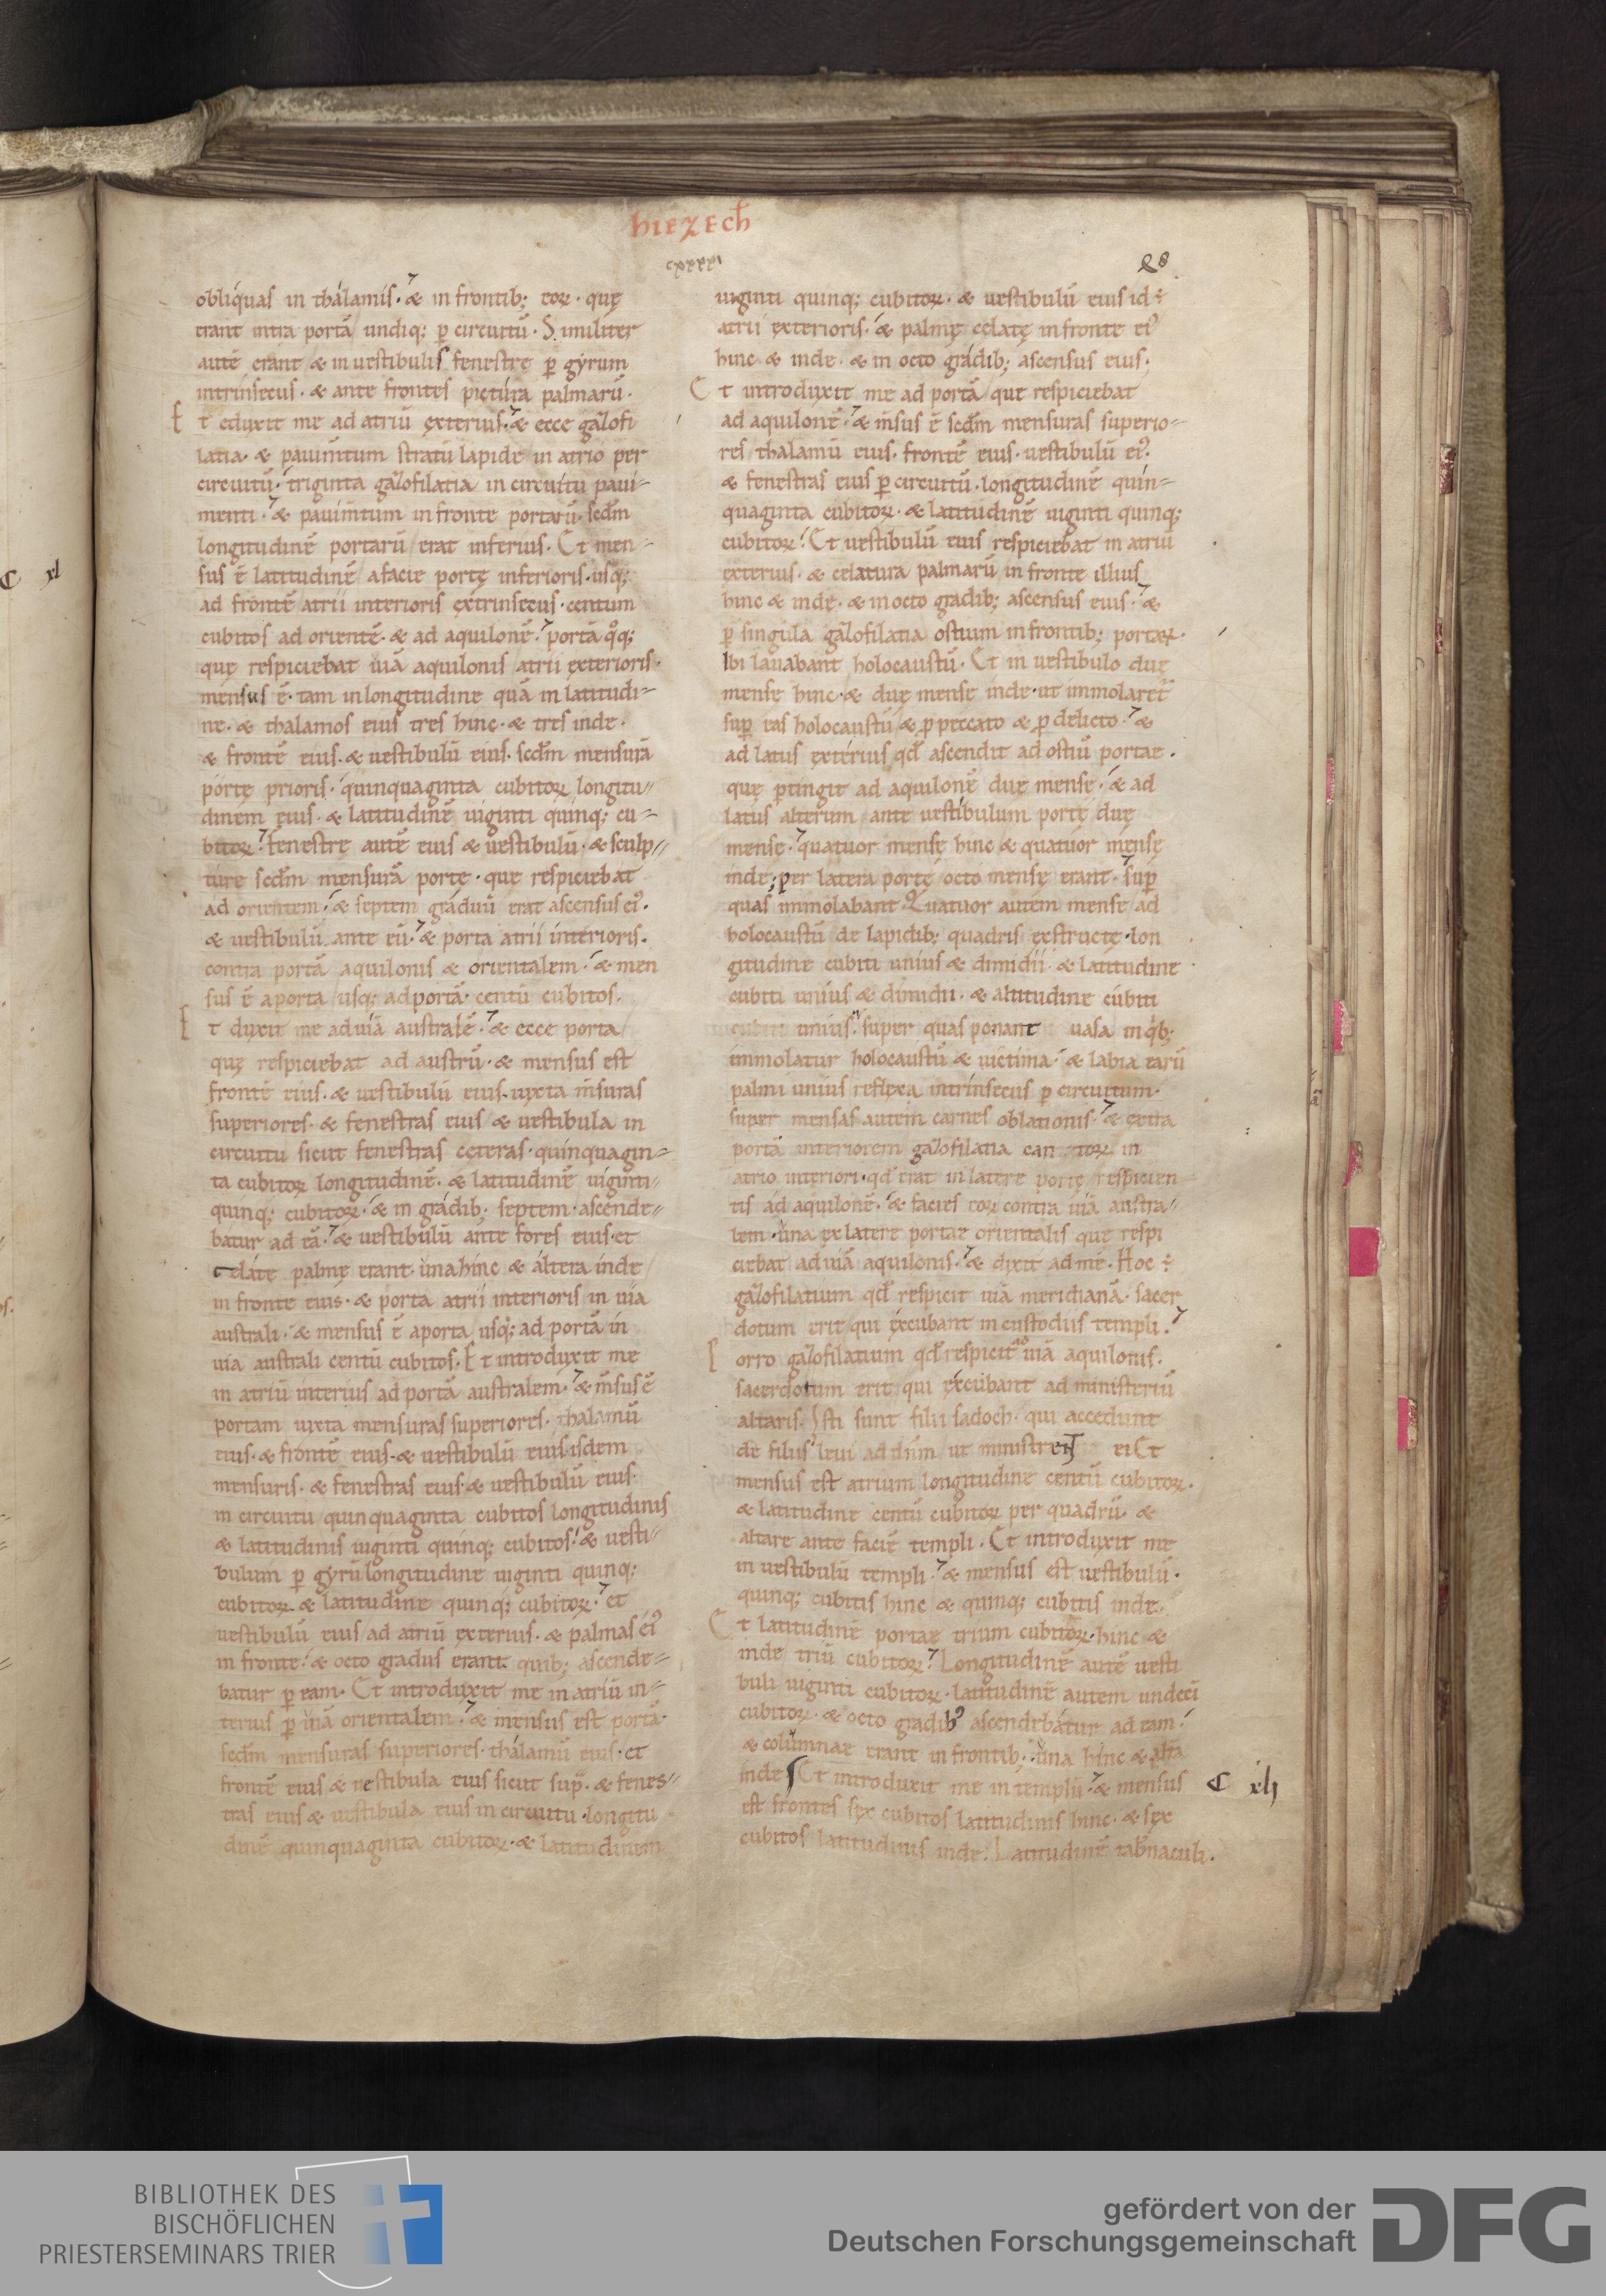 hiezech̄
cxxxxı
88
obliquas in thalamis· & in frontib; eoꝝ· quę
erant intra portā undiq; ꝑ circuitū· Similiter
autē erant & in uestibulis fenestrę ꝑ gyrum
intrinsecus· & ante frontes pictura palmarū·
Et eduxit me ad atriū exterius· & ecce gazofi
latia· & pauim̄tum stratū lapide in atrio per
circuitū· triginta gazofilatia in circuitu paui-
menti· & pauim̄tum in fronte portarū· scd̄m
longitudinē portarū erat inferius· Et men-
sus ē latitudinē a facie portę inferioris· usq;
ad frontē atrii interioris extrinsecus· centum
cubitos ad orientē· & ad aquilonē· portā qͦq;
quę respiciebat uiā aquilonis atrii exterioris·
mensus ē· tam in longitudine quā in latitudi-
ne· & thalamos eius tres hinc· & tres inde·
& frontē eius· & uestibulū eius· scd̄m mensurā
portę prioris· quinquaginta cubitoꝝ longitu-
dinem eius· & latitudinē uiginti quinq; cu-
bitoꝝ· Fenestrę autē eius & uestibulū· & sculp-
ture scd̄m mensurā portę· que respiciebat
ad orientem· & septem graduū erat ascensus eiꝰ·
& uestibulū ante eū· & porta atrii interioris·
contra portā aquilonis & orientalem· & men
sus ē a porta usq; ad portā· centū cubitos·
Et duxit me ad uiā australē· & ecce porta
quę respiciebat ad austrū· & mensus est
frontē eius· & uestibulū eius· iuxta m̄suras
superiores· & fenestras eius & uestibula in
circuitu sicut fenestras cęteras· quinquagin-
ta cubitoꝝ longitudinē· & latitudinē uiginti-
quinq; cubitoꝝ· & in gradib; septem· ascende-
batur ad eā· & uestibulū ante fores eius· et
celate palmę erant· una hinc & altera inde
in fronte eius· & porta atrii interioris in uia
australi· & mensus ē a porta usq; ad portā in
uia australi centū cubitos· Et introduxit me
in atriū interius ad portā australem· & m̄sus ē
portam iuxta mensuras superiores· thalamū
eius· & frontē eius· & uestibulū eius· isdem
mensuris· & fenestras eius· & uestibulū eius·
in circuitu quinquaginta cubitos longitudinis
& latitudinis uiginti quinq; cubitos· & uesti-
bulum ꝑ gyrū longitudine uiginti quinq;
cubitoꝝ· & latitudine quinq; cubitoꝝ· et
uestibulū eius ad atriū exterius· & palmas eiꝰ
in fronte· & octo gradus erant· quib; ascende-
batur ꝑ eam· Et introduxit me in atriū in-
terius ꝑ uiā orientalem· & mensus est portā·
scd̄m mensuras superiores· thalamū eius· et
frontē eius & uestibula eius sicut sup̄· & fenes-
tras eius & uestibula eius in circuitu· longitu
dinē quinquaginta cubitoꝝ· & latitudinem
uiginti quinq; cubitoꝝ· & uestibulū eius id ÷
atrii exterioris· & palmę celatę in fronte eiꝰ
hinc & inde· & in octo gradib; ascensus eius·
Et introduxit me ad portā que respiciebat
ad aquilonē· & m̄sus ē scd̄m mensuras superio-
res thalamū eius· frontē eius· uestibulū eiꝰ·
& fenestras eius ꝑ circuitū· longitudinē quin-
quaginta cubitoꝝ· & latitudinē uiginti quinq;
cubitoꝝ· Et uestibulū eius respiciebat in atriū
exterius· & celatura palmarū in fronte illius
hinc & inde· & in octo gradib; ascensus eius· &
ꝑ singula gazofilatia ostium in frontib; portaꝝ·
Ibi lauabant holocaustū· Et in uestibulo duę
mensę hinc· & duę mensę inde· ut immolaret̄
suꝑ eas holocaustū & ꝓ peccato & ꝓ delicto· &
ad latus exterius qd̄ ascendit ad ostiū portae·
quę ꝑtingit ad aquilonē duę mensę· & ad
latus alterum ante uestibulum portę duę
mensę· quatuor mensę hinc & quatuor mensę
inde; per latera portę octo mensę erant· suꝑ
quas immolabant· Quatuor autem mensę ad
holocaustū de lapidib; quadris exstructę· lon
gitudine cubiti unius & dimidii· & latitudine
cubiti unius & dimidii· & altitudine cubiti
unius· super quas ponant uasa in qͥb;
immolatur holocaustū & uictima· & labia earū
palmi unius reflexa intrinsecus ꝑ circuitum·
super mensas autem carnes oblationis· & extra
portā interiorem gazofilatia cantoꝝ in
atrio interiori· qd̄ erat in latere portę respicien
tis ad aquilonē· & facies eoꝝ contra uiā austra-
lem· una ex latere portae orientalis que respi
ciebat ad uiā aquilonis· & dixit ad me· Hoc ÷
gazofilatium qd̄ respicit uiā meridianā· sacer
dotum erit qui excubant in custodiis templi·
Porro gazofilatium qd̄ respicit ad uiā aquilonis·
sacerdotum erit qui excubant ad ministeriū
altaris· Isti sunt filii sadoch· qui accedunt
de filiis leui ad dn̄m ut ministrent ei Et
mensus est atrium longitudine centū cubitoꝝ·
& latitudine centū cubitoꝝ per quadrū· &
altare ante faciē templi· Et introduxit me
in uestibulū templi· & mensus est uestibulū·
quinq; cubitis hinc & quinq; cubitis inde·
Et latitudinē portae trium cubitoꝝ· hinc &
inde triū cubitoꝝ· Longitudinē autē uesti
buli uiginti cubitoꝝ· latitudinē autem undecī
cubitoꝝ· & octo gradibꝰ ascendebatur ad eam·
& columnae erant in frontib; una hinc & alt̄a
inde Et introduxit me in templū· & mensus C xlj
est frontes sex cubitos latitudinis hinc· & sex
cubitos latitudinis inde· Latitudinē tab̄naculi·
C xl
BIBLIOTHEK DES
BISCHÖFLICHEN
PRIESTERSEMINARS TRIER
gefördert von der
Deutschen Forschungsgemeinschaft
DFG